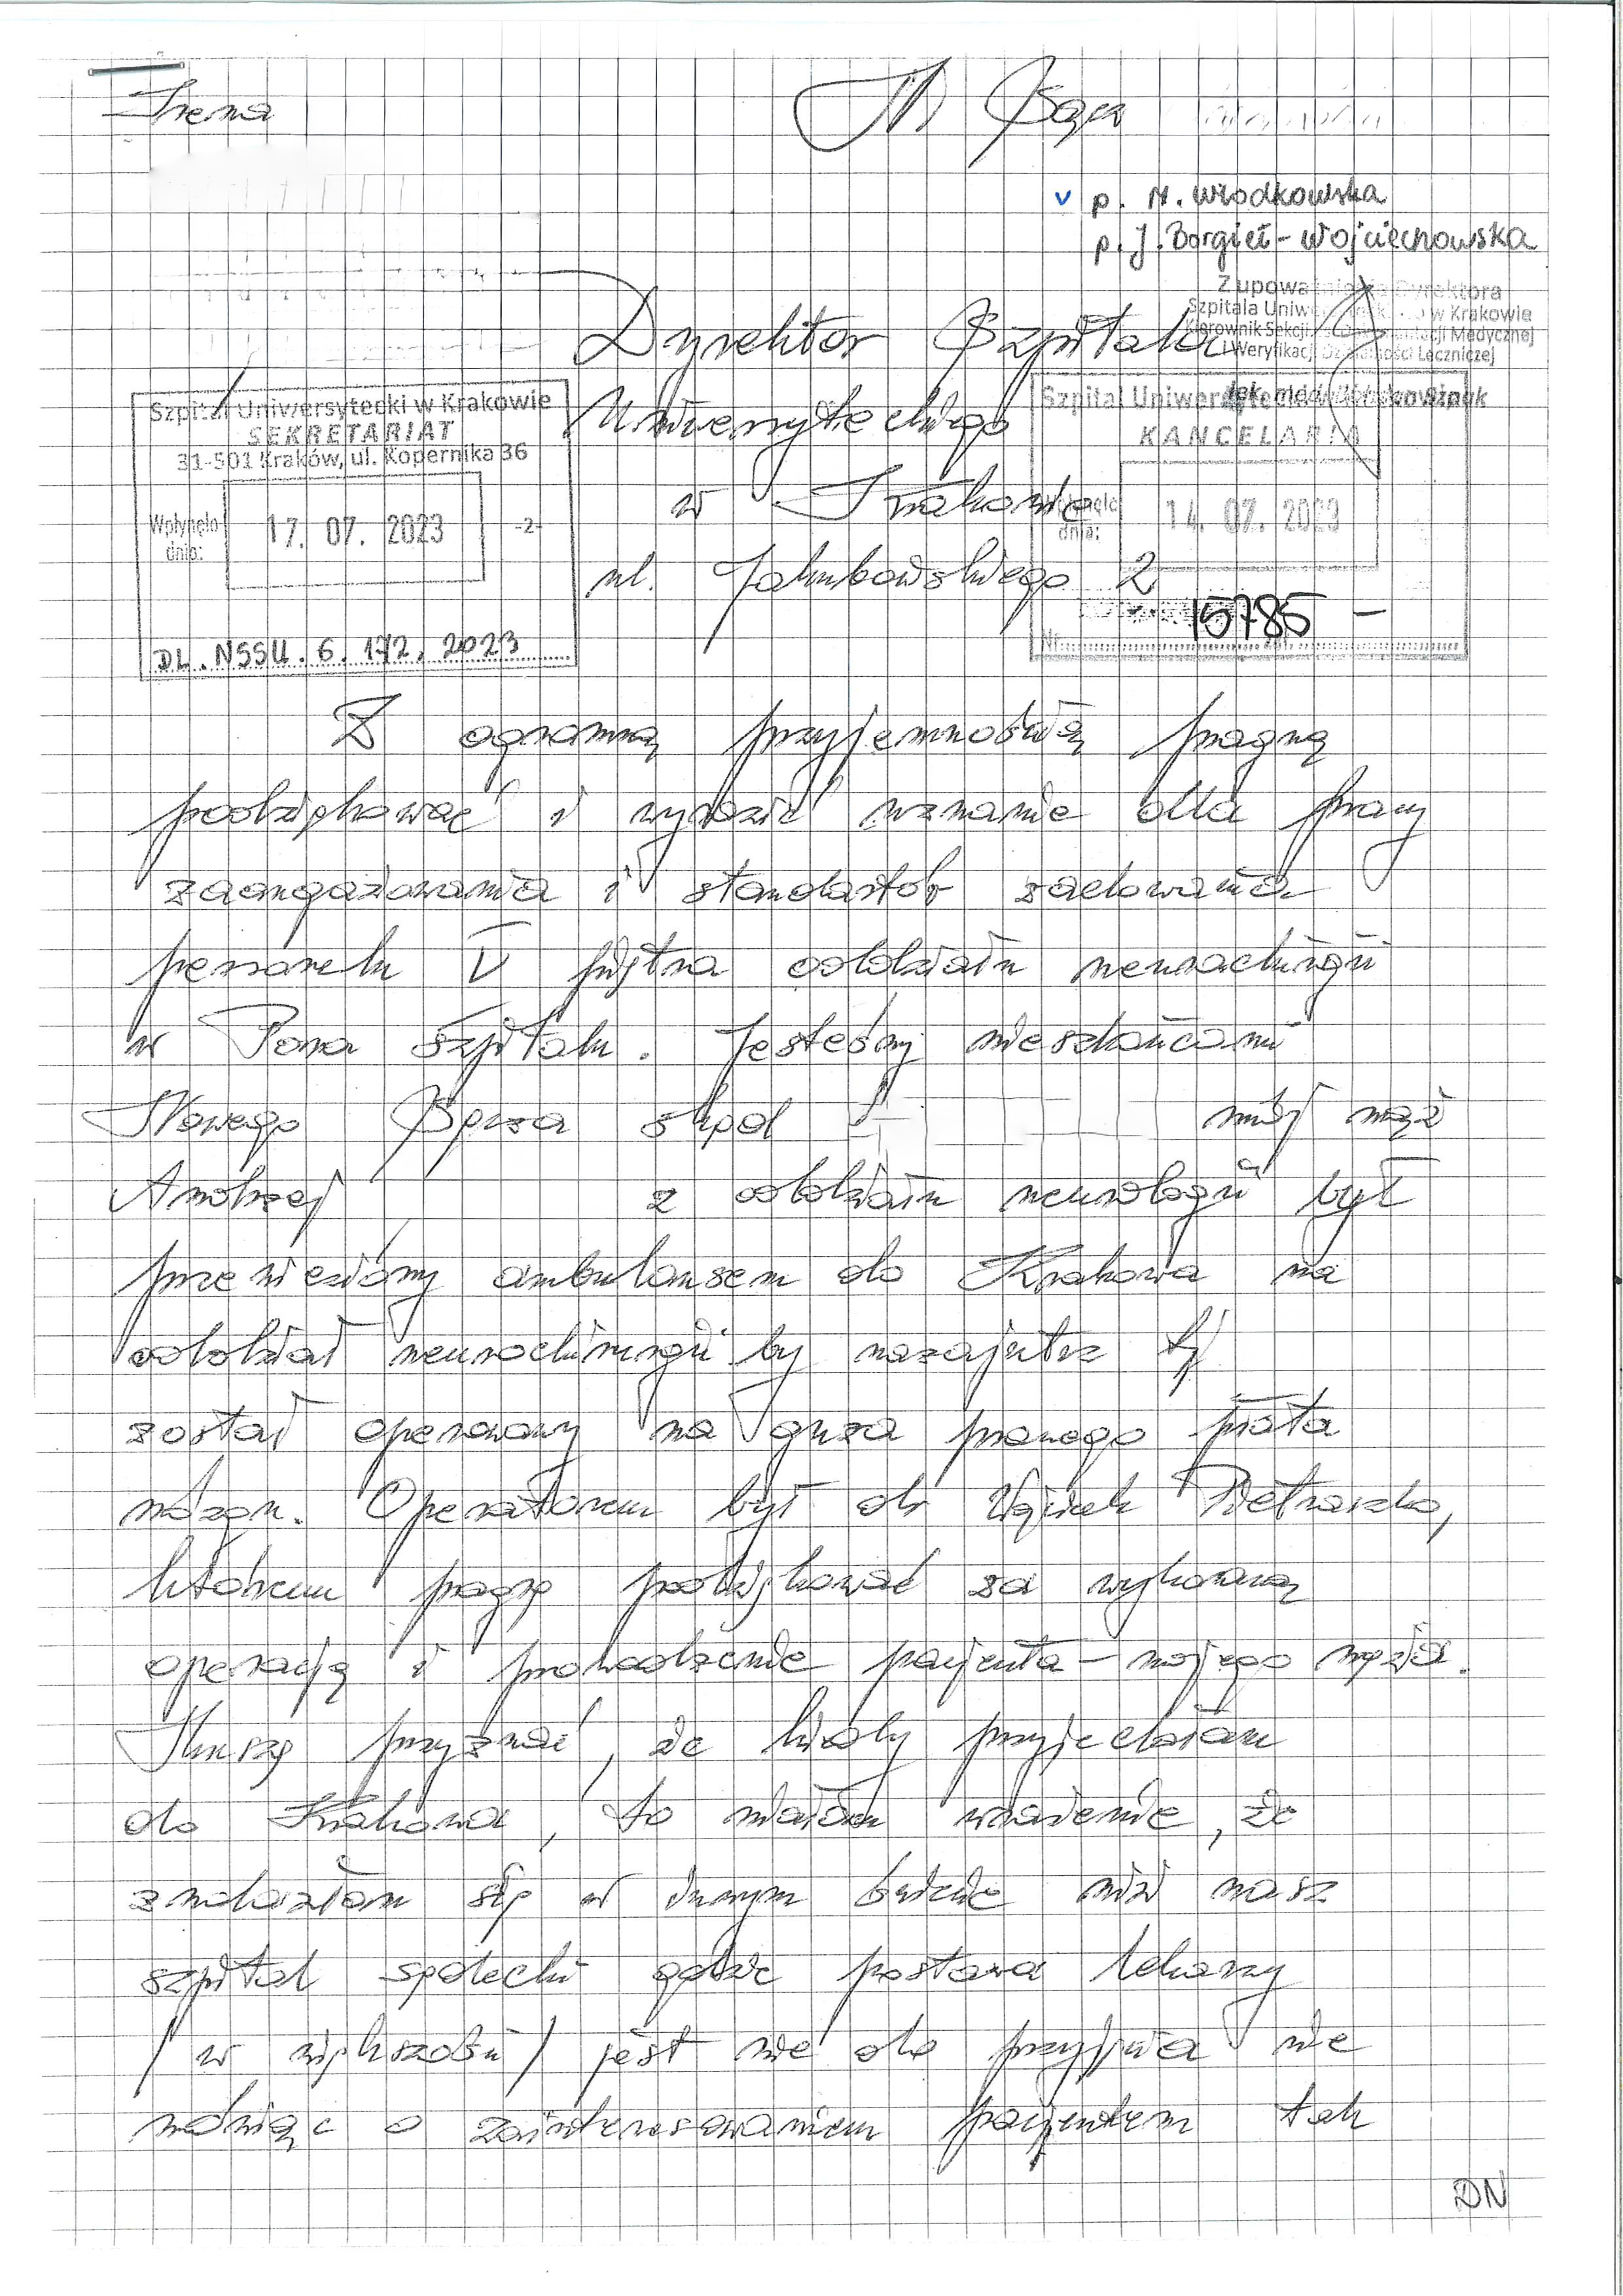 Irena
N. Sącz
v p. M. Włodkowska
p. J. Bargieł-Wojciechowska
Z upoważnienia Dyrektora
Szpitala Uniwersyteckiego w Krakowie
Kierownik Sekcji Dokumentacji Medycznej
i Weryfikacji Działalności Leczniczej
Dyrektor Szpitala
Uniwersyteckiego
w Krakowie
ul. Jakubowskiego 2
Szpital Uniwersytecki w Krakowie
SEKRETARIAT
31-501 Kraków, ul. Kopernika 36
Wpłynęło
dnia:
17. 07. 2023
-2-
DL.NSSU.6.172.2023
Szpital Uniwersytecki
KANCELARIA
dnia:
14. 07. 2023
Nr
15785 -
Z ogromną przyjemnością pragnę
podziękować i wyrazić uznanie dla pracy
zaangażowania i standardów zachowania
personelu V piętra oddziału neurochirurgii
w Pana szpitalu. Jesteśmy mieszkańcami
Nowego Sącza skąd mój mąż
Andrzej z oddziału neurologii był
przewieziony ambulansem do Krakowa na
oddział neurochirurgii by nazajutrz tj
został operowany na guza prawego płata
mózgu. Operatorem był dr Wojciech Pietraszko,
któremu pragnę podziękować za wykonaną
operację i prowadzenie pacjenta - mojego męża.
Muszę przyznać, że kiedy przyjechałam
do Krakowa, to miałam wrażenie, że
znalazłam się w innym świecie niż nasz
szpital sądecki gdzie postawa lekarzy
/ w większości / jest nie do przyjęcia nie
mówiąc o zainteresowaniem pacjentem tak
DN